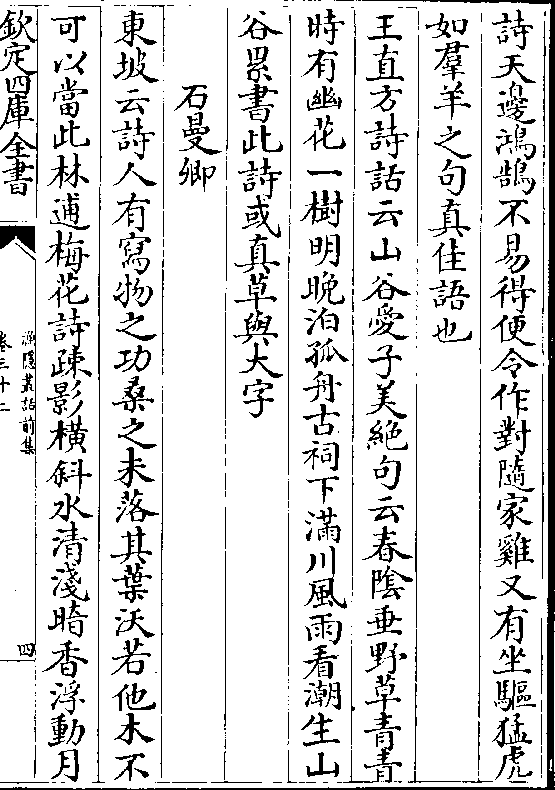 詩天邊鴻鵠不易得便令作對隨家雞又有坐驅猛虎
如羣羊之句真佳語也
王直方詩話云山谷愛子美絶句云春陰垂野草青青
時有幽花一樹明晚泊孤舟古祠下滿川風雨看潮生山
谷累書此詩或真草與大字
石曼卿
東坡云詩人有寫物之功桑之未落其葉沃若他木不
可以當此林逋梅花詩疎影橫斜水清淺暗香浮動月
欽定四庫全書
漁隱叢話前集
卷三十二
四